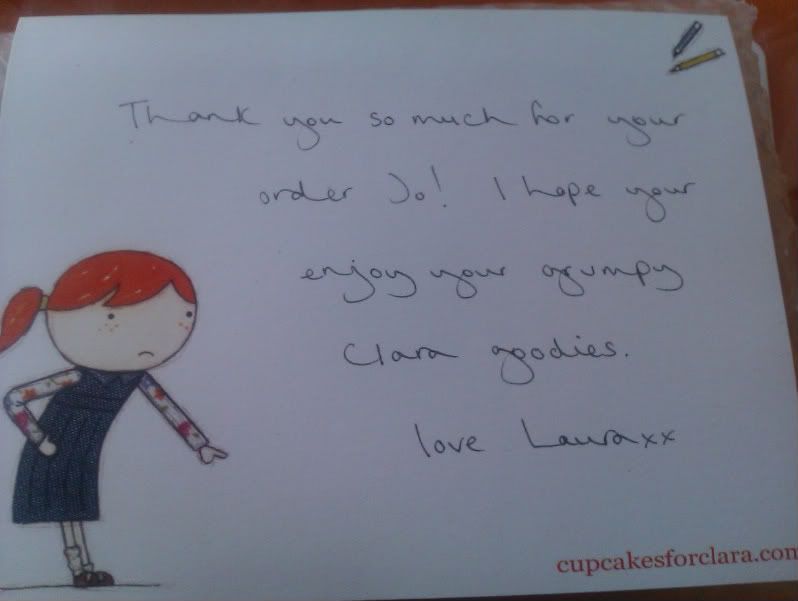 Thank you so much for your
order Jo! I hope your
enjoy your grumpy
Clara goodies.
love Laura xx
cupcakesforclara.com